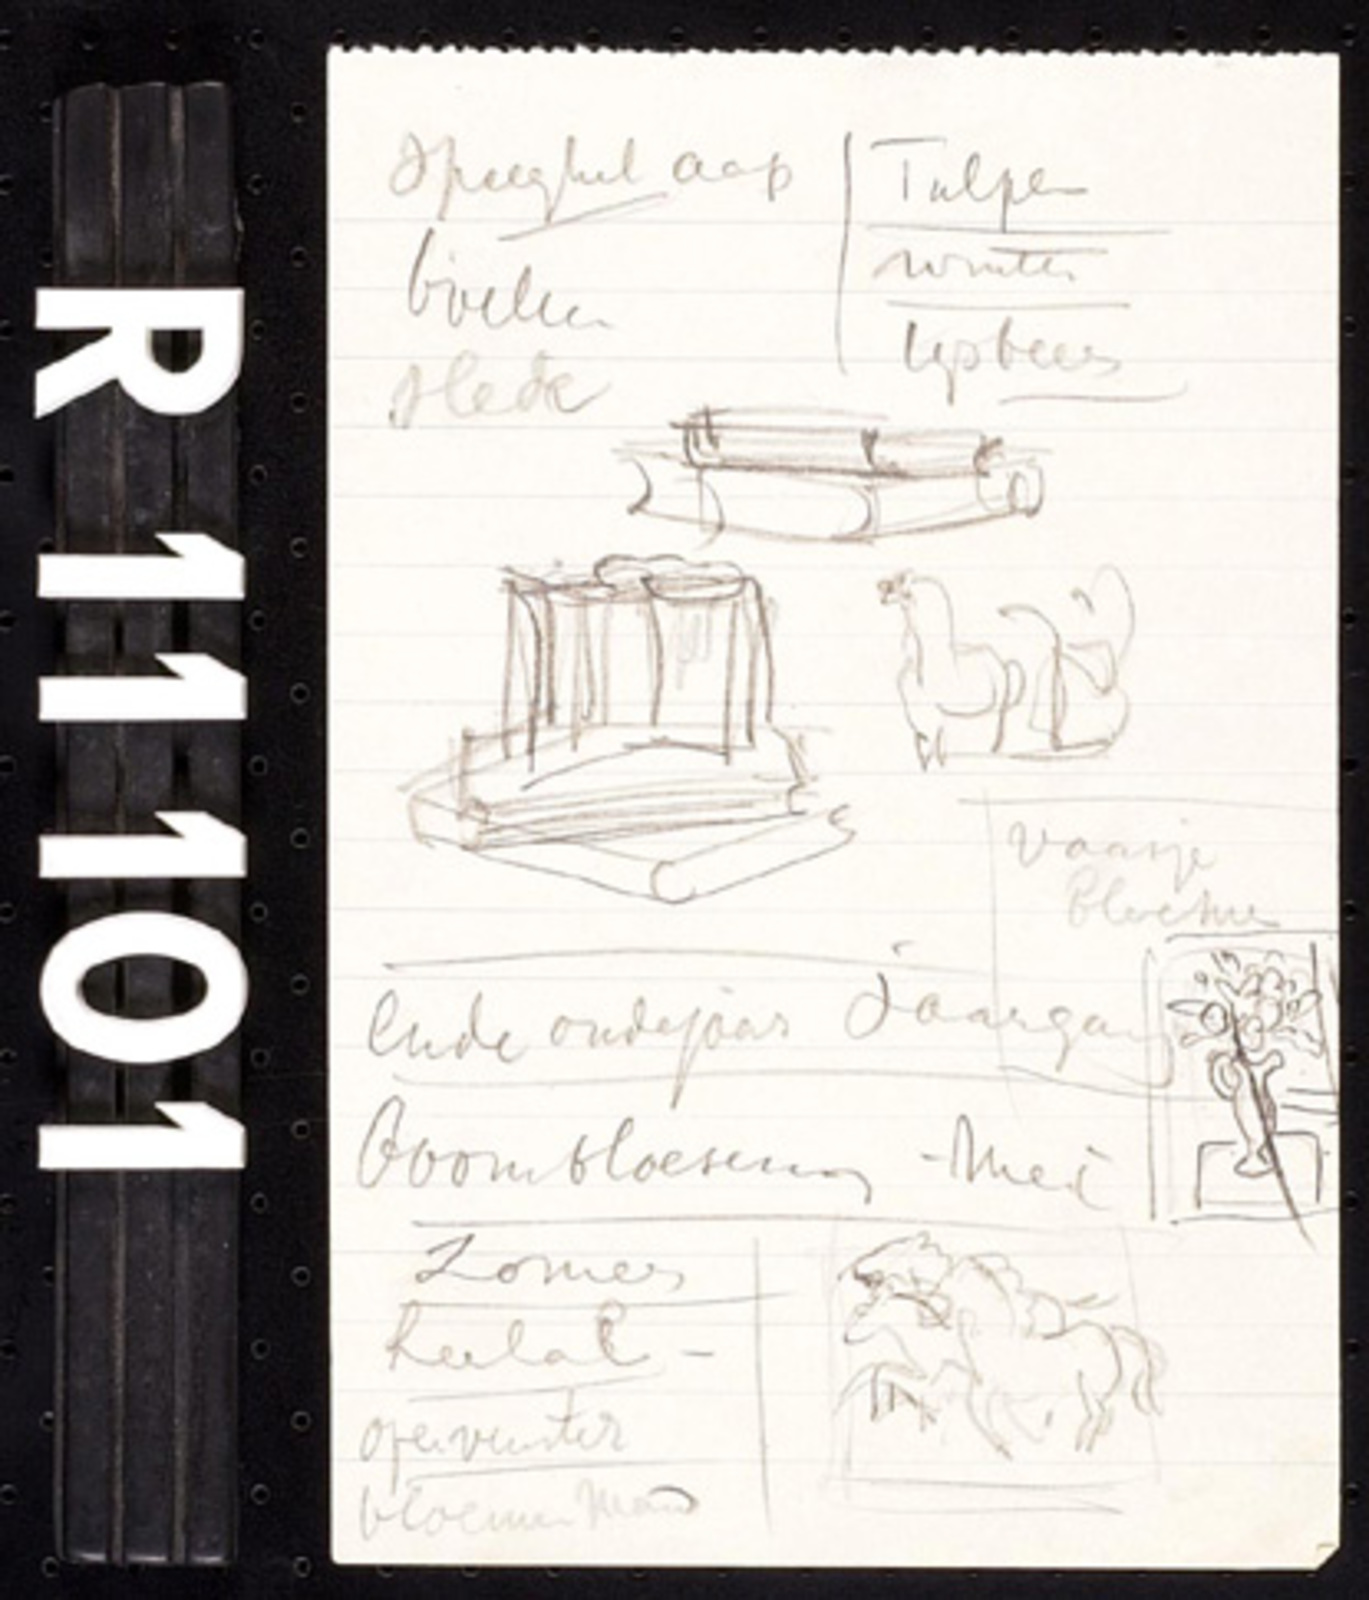 R 11101
Spieghel aap
boeken
slede
Tulpen
winter
ijsbeer
vaasje
bloemen
Einde oudejaar Jaargang
Boombloesem - Mei
Zomer
open venster
bloemen Mand